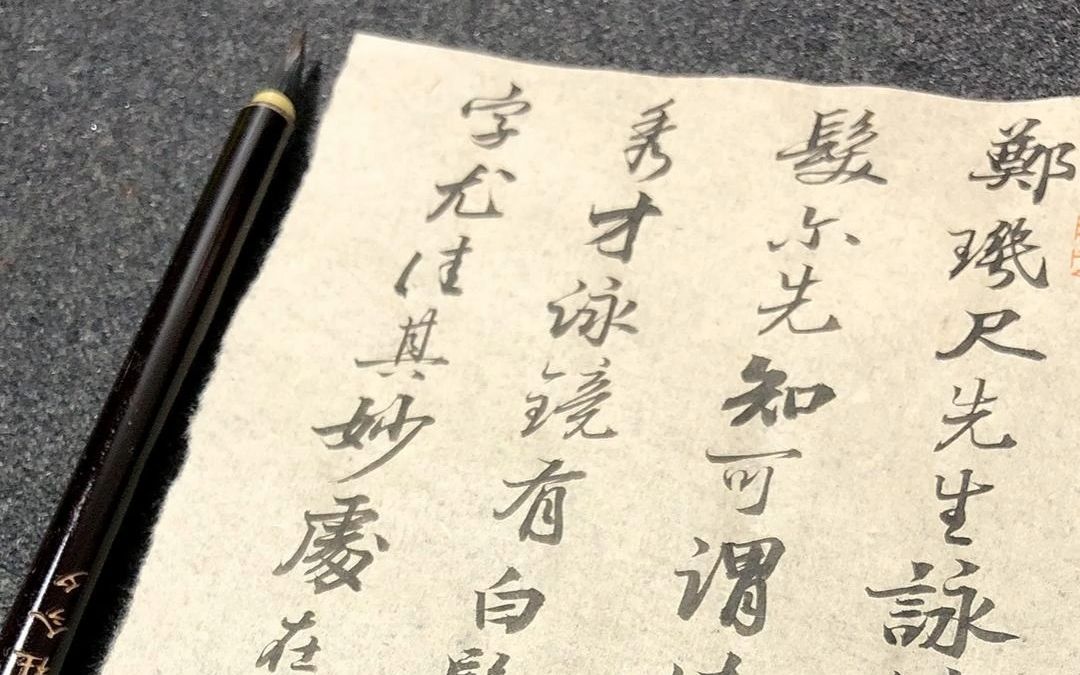 鄭璣尺先生詠
髮尔先知可謂
秀才泳鏡有白髮
字尤佳其妙處在